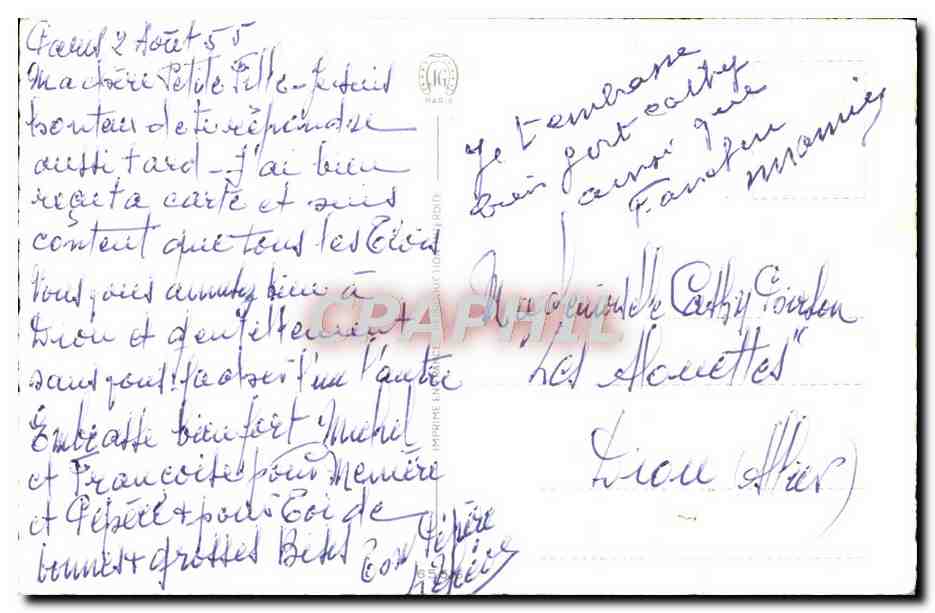 Paris 2 Août 55
Ma chère Petite Fille - Je suis
honteux de te répondre
aussi tard - J'ai bien
reçu ta carte et suis
content que tous les Trois
Vous vous amusez bien à
Diou et gentillement
sans vous l'un l'autre
Embrasse bien fort Michel
et Françoise pour Memère
et Pépère & pour Toi de
bonnes & grosses Bises
Ton Pépère
IG
PARIS
Je t'embrasse
bien fort Cathy
ainsi que
Fanchon
Mamie
IMPRIME EN FRANCE REPRODUCTION INTERDITE
CRAPHIL
Mademoiselle Cathy
"Les Alouettes"
Diou (Allier)